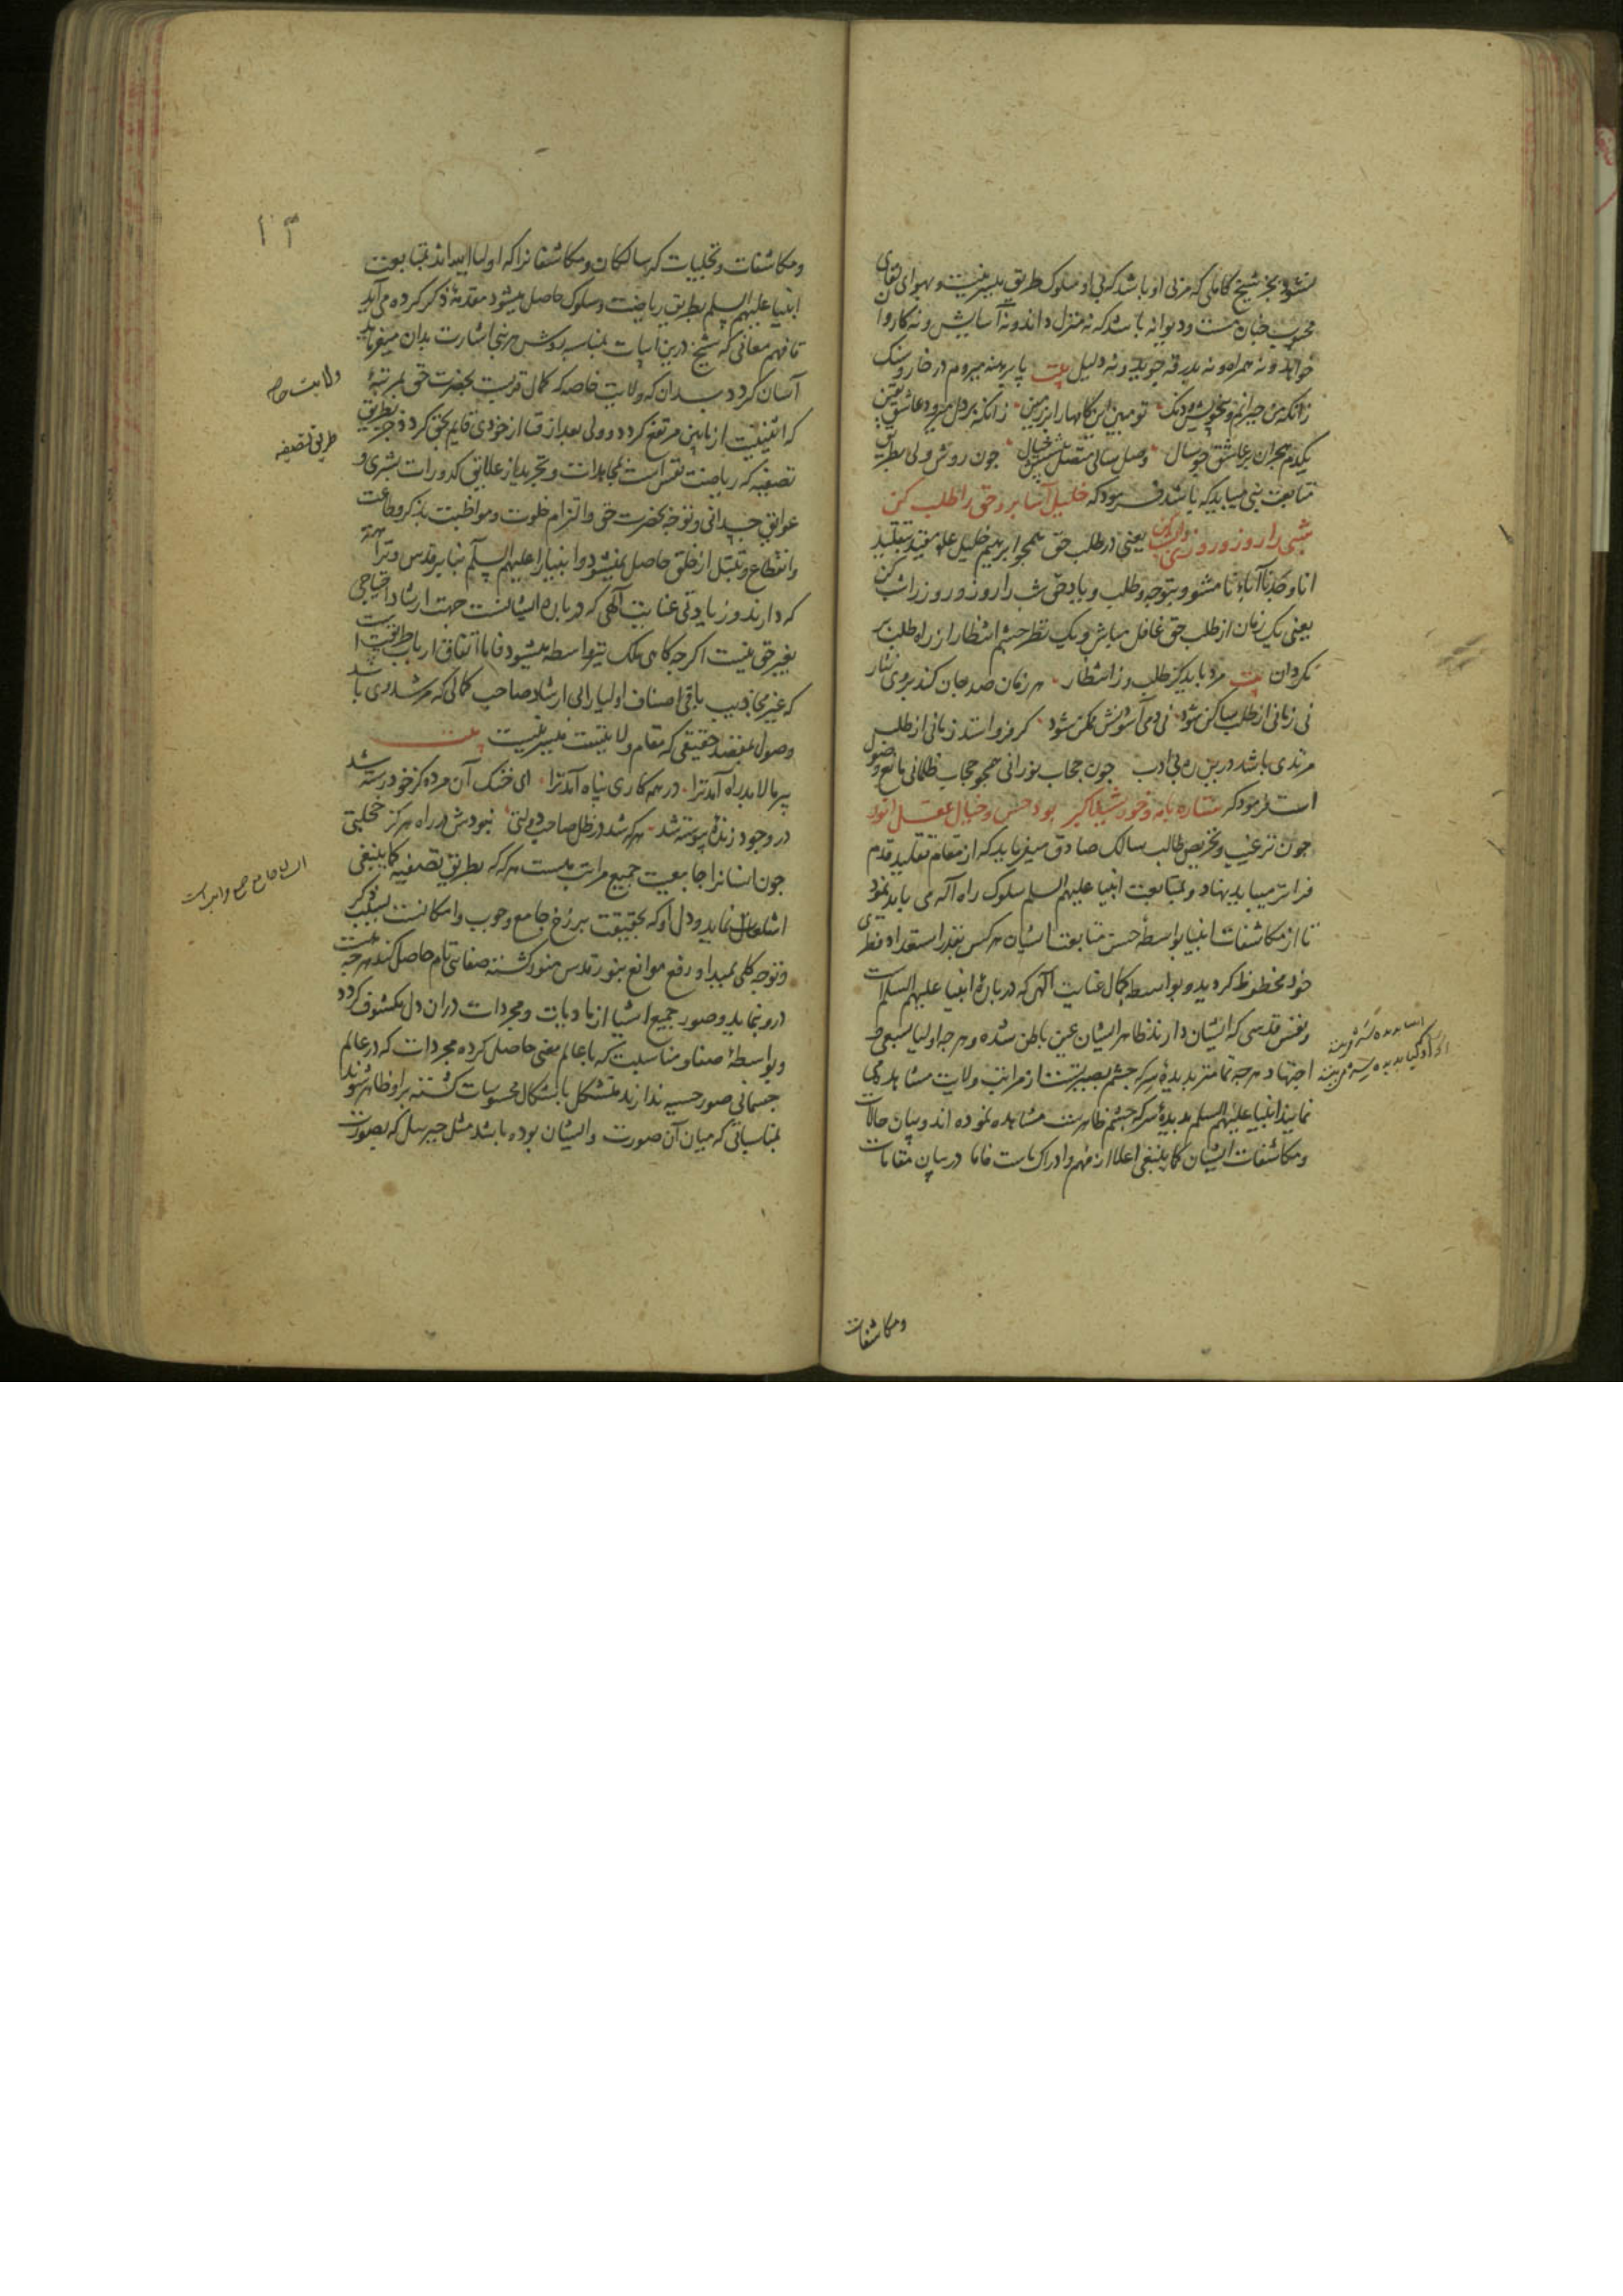 نشود بجز شیخ کاملی که مربی او باشد که بی او سلوک طریق میسر نیست و بهوای لقای
محبوب چنان مست و دیوانه باشد که نه منزل داند و نه آسایش و نه کاروان
خواهد و نه همراه و نه بدرقه جوید و نه دلیل بیت پا برهنه میروم در خار و سنک
زانکه من حیرانم و بیخویش و دنک تو مبین این کامها را بر زمین زانکه بر دل میرود عاشق یقین
یکدم هجران بر عاشق چو سال وصل سالی متصل پیشش خیال جون روش ولی بطریق
متابعت نبی میباید که باشد فرمود که خلیل آسا برو حق را طلب کن
شبی را روز و روزی را بشب کن یعنی در طلب حق همجو ابرهیم خلیل علم مقید بتقلید
انا وجدنا آباءنا مشو و بتوجه و طلب و یاد حق شب را روز و روز را شب کن
یعنی یک زمان از طلب حق غافل مباش و یک نظر چشم انتظار از راه طلب بر
مکردان بیت مرد باید کز طلب وز انتظار هر زمان صد جان کند بروی نثار
نی زمانی از طلب ساکن شود نی دمی آسودنش ممکن شود کر فرو استد زمانی از طلب
مرتدی باشد درین ره بی ادب جون حجاب نورانی همجو حجاب ظلمانی مانع وصول
است فرمود که ستاره با مه و خورشید اکبر بود حس و خیال و عقل انور
جون ترغیب و تحریص طالب سالک صادق میفرماید که از مقام تقلید قدم
فراتر میباید نهاد و بمتابعت انبیا علیهم السلم سلوک راه آله می باید نمود
تا از مکاشفات انبیا بواسطهٔ حسن متابعت ایشان هر کس بقدر استعداد فطری
خود محظوظ کردید و بواسطهٔ کمال عنایت الهی که در بارهٔ انبیا علیهم السلام است
و نفس قدسی که ایشان دارند ظاهر ایشان عین باطن شده و هر جه اولیا بسعی و
اجتهاد هر جه تمامتر بدیدهٔ سر که جشم بصیرتست از مراتب ولایت مشاهده می
نمایند انبیا علیهم السلم بدیدهٔ سر که جشم ظاهرست مشاهده نموده اند و بیان حالات
و مکاشفات ایشان کما ینبغی اعلا از فهم و ادراک ماست فاما در بیان مقامات
ومکاشفات
۱۳
و مکاشفات و تجلیات که سالکان و مکاشفانرا که اولیا اند بمتابعت
انبیا علیهم السلم بطریق ریاضت و سلوک حاصل میشود مقدمهٔ ذکر کرده می آید
تا فهم معانی که شیخ درین ابیات بمناسبه روش هر نبی اشارت بدان میفرماید
آسان کردد بدان که ولایت خاصه که کمال قربت بحضرت حق بمرتبهٔ
که اثنینیت از مابین مرتفع کردد و ولی بعد از فنا از خودی قایم بحق کردد جز بطریق
تصفیه که ریاضت نفس است بمجاهدات و تجرید از علایق کدورات بشری و
عوایق جسدانی و توجه بحضرت حق و التزام خلوت و مواظبت بذکر و طاعت
و انقطاع و تبتل از خلق حاصل نمیشود و انبیا را علیهم السلم بنابر قدس و نزاهت
که دارند و زیادتی عنایت آلهی که در بارهٔ ایشانست جهت ارشاد احتیاجی
بغیر حق نیست اکر جه کاهی ملک نیز واسطه میشود فاما اتفاق ارباب طریقت است
که غیر مجاذیب باقی اصناف اولیا را بی ارشاد صاحب کمالی که مرشد وی باشد
وصول بمقصد حقیقی که مقام ولایتست میسر نیست بیت
پیر مالابد راه آمد ترا در همه کاری پناه آمد ترا ای خنک آن مرده کز خود رسته شد
در وجود زندهٔ پیوسته شد هر که شد در ظل صاحب دولتی نبودش در راه هرکز خجلتی
جون انسانرا جامعیت جمیع مراتب هست هر که بطریق تصفیه کما ینبغی
اشتغال نماید و دل او که بحقیقت برزخ جامع وجوب و امکانست بسبب ذکر
و توجه کلی بمبدأ و رفع موانع بنور قدس منور کشته صفای تام حاصل کند هرجه هست
درو نماید و صور جمیع اشیا از مادیات و مجردات در ان دل مکشوف کردد
و بواسطهٔ صفا و مناسبت که با عالم معنی حاصل کرده مجردات که در عالم
جسمانی صور حسیه ندارند متشکل باشکال محسوسات کشته براو ظاهر شوند
بمناسباتی که میان آن صورت و ایشان بوده باشد مثل جبرییل که بصورت
ولایت خاصه
طریق تصفیه